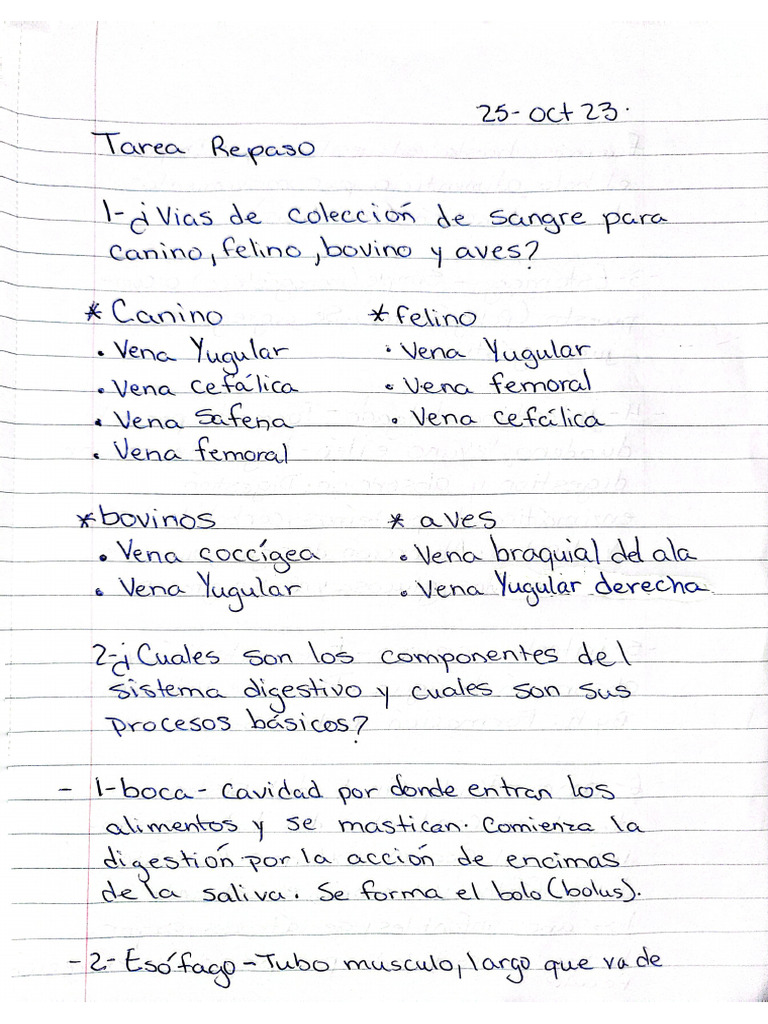 25-Oct 23.
Tarea Repaso
1-¿Vias de colección de sangre para
canino, felino, bovino y aves?
* Canino
• Vena Yugular
• Vena cefálica
• Vena Safena
• Vena femoral
* felino
• Vena Yugular
• Vena femoral
• Vena cefálica
* bovinos
• Vena coccígea
• Vena Yugular
* aves
• Vena braquial del ala
• Vena Yugular derecha
2-¿Cuales son los componentes del
sistema digestivo y cuales son sus
procesos básicos?
- 1-boca- Cavidad por donde entran los
alimentos y se mastican. Comienza la
digestión por la acción de encimas
de la saliva. Se forma el bolo (bolus).
- 2.- Esófago - Tubo musculo, largo que va de